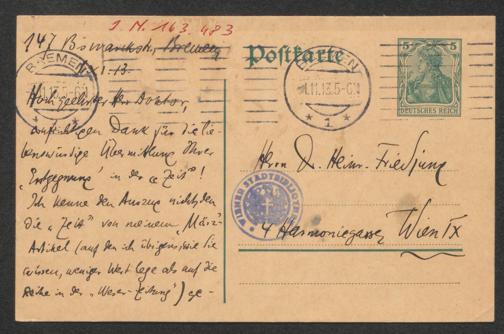 I. N. 163.483
147 Bismarckstr. Bremen
Postkarte
BREMEN
1
BREMEN
1.11.13.5-6
1
5 5
DEUTSCHES REICH
Hochgeehrter Herr Doktor,
aufrichtigen Dank für die lie-
benswürdige Übermittlung Ihrer
„Entgegnung" in der „Zeit"!
Ich kenne den Auszug nicht, den
die „Zeit" von meinem „März"-
Artikel (auf den ich übrigens, wie Sie
wissen, weniger Wert lege als auf die
Reihe in der „Weser-Zeitung") ge-
Herrn Dr. Heinr. Friedjung
WIENER STADTBIBLIOTHEK
4 Harmoniegasse Wien IX